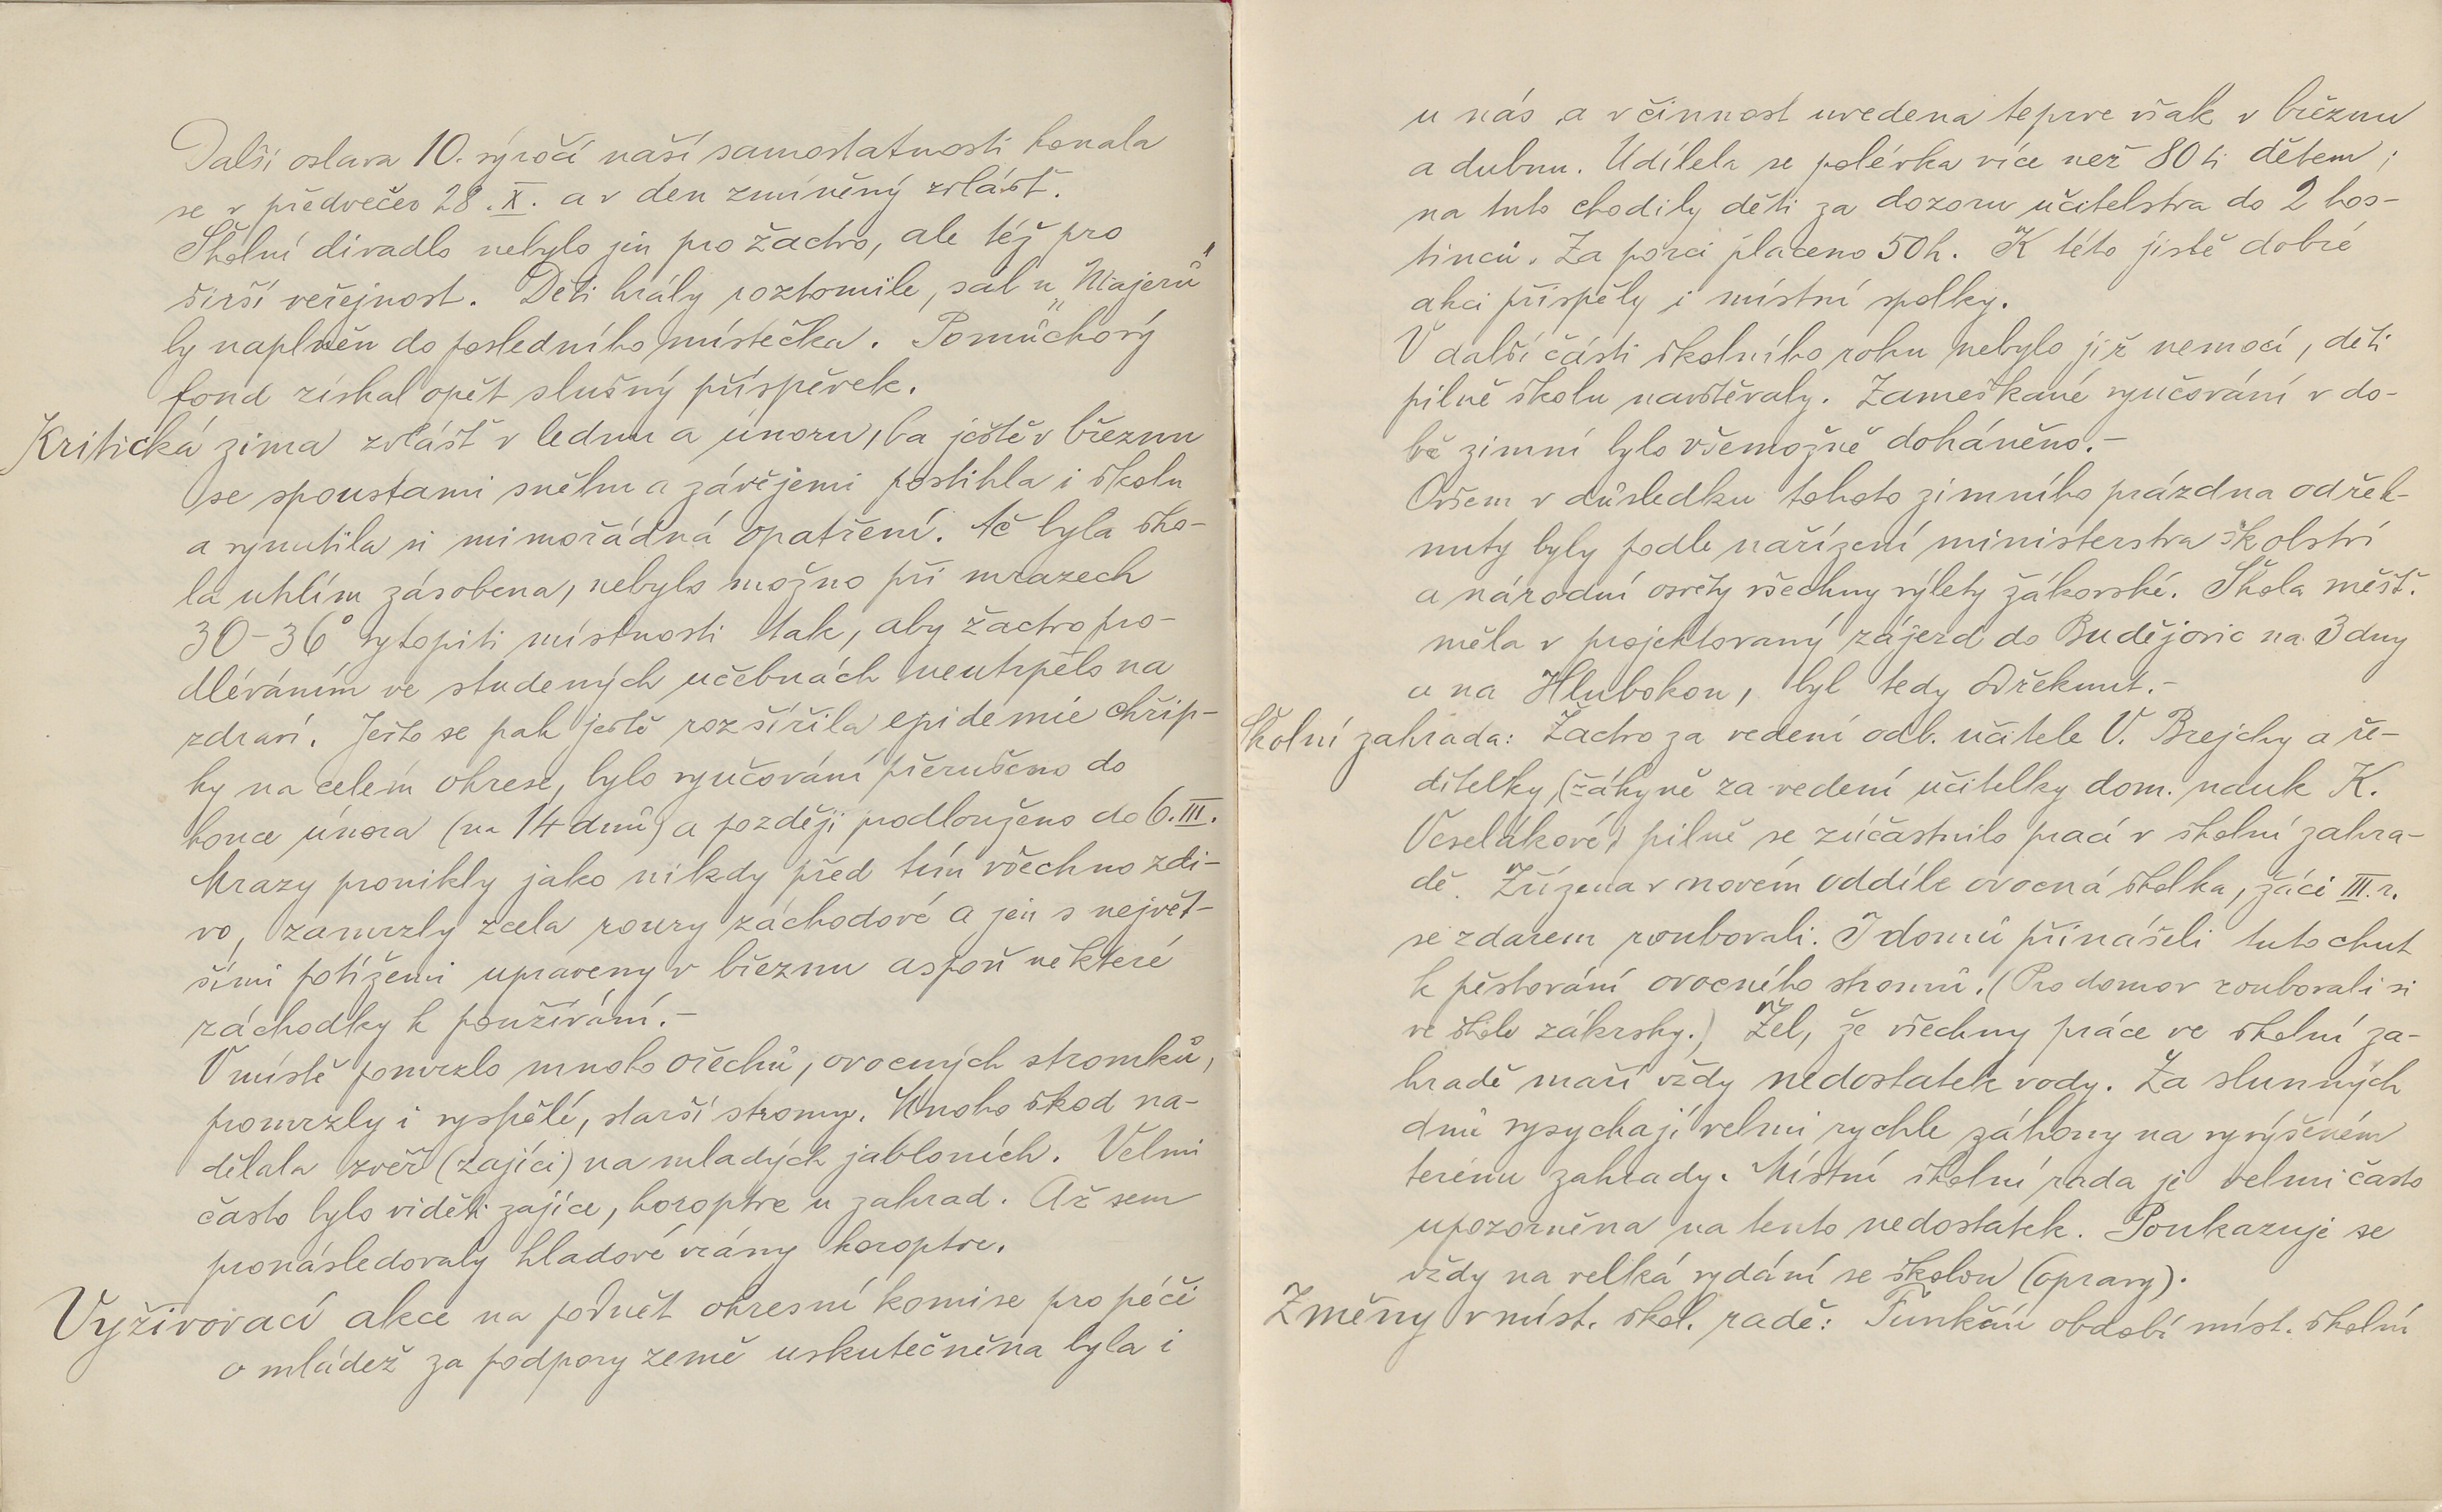 Další oslava 10. výročí naší samostatnosti konala
se v předvečer 28. X. a v den zmíněný zvlášť.
Školní divadlo nebylo jen pro žactvo, ale též pro
širší veřejnost. Děti hrály roztomile, sál u „Majerů"
byl naplněn do posledního místečka. Pomůckový
fond získal opět slušný příspěvek.
Kritická zima zvlášť v lednu a únoru, ba ještě v březnu
se spoustami sněhu a závějemi postihla i školu
a vynutila si mimořádná opatření. Ač byla ško-
la uhlím zásobena, nebylo možno při mrazech
30-36° vytopiti místnosti tak, aby žactvo pro-
dléváním ve studených učebnách neutrpělo na
zdraví. Ježto se pak ještě rozšířila epidemie chřip-
ky na celém okrese, bylo vyučování přerušeno do
konce února (na 14 dnů) a později prodlouženo do 6. III.
Mrazy pronikly jako nikdy před tím všechno zdi-
vo, zamrzly zcela roury záchodové a jen s největ-
šími potížemi upraveny v březnu aspoň některé
záchodky k používání.-
V místě pomrzlo mnoho ořechů, ovocných stromků,
promrzly i vyspělé, starší stromy. Mnoho škod na-
dělala zvěř (zajíci) na mladých jabloních. Velmi
často bylo viděti zajíce, koroptve u zahrad. Až sem
pronásledovaly hladové vrány koroptve.
Vyživovací akce na podnět okresní komise pro péči
o mládež za podpory země uskutečněna byla i
u nás a v činnost uvedena teprve však v březnu
a dubnu. Udílela se polévka více než 80 ti dětem;
na tuto chodily děti za dozoru učitelstva do 2 hos-
tinců. Za porci placeno 50 h. K této jistě dobré
akci přispěly i místní spolky.
V další části školního roku nebylo již nemocí, děti
pilně školu navštěvaly. Zameškané vyučování v do-
bě zimní bylo všemožně doháněno.-
Ovšem v důsledku tohoto zimního prázdna odřek-
nuty byly podle nařízení ministerstva školství
a národní osvěty všechny výlety žákovské. Škola měšť.
měla v projektovaný zájezd do Budějovic na 3 dny
a na Hlubokou, byl tedy odřeknut.-
Školní zahrada: Žactvo za vedení odb. učitele V. Brejchy a ře-
ditelky, (žákyně za vedení učitelky dom. nauk K.
Veselákové) pilně se zúčastnilo prací v školní zahra-
dě. Zřízena v novém oddíle ovocná školka, žáci III. r.
se zdarem roubovali. I domů přinášeli tuto chuť
k pěstování ovocného stromů. (Pro domov roubovali si
ve škole zákrsky.) Žel, že všechny práce ve školní za-
hradě maří vždy nedostatek vody. Za slunných
dnů vysychají velmi rychle záhony na vyvýšeném
terénu zahrady. Místní školní rada je velmi často
upozorněna na tento nedostatek. Poukazuje se
vždy na velká vydání se školou (opravy).
Změny v míst. škol. radě: Funkční období míst. školní